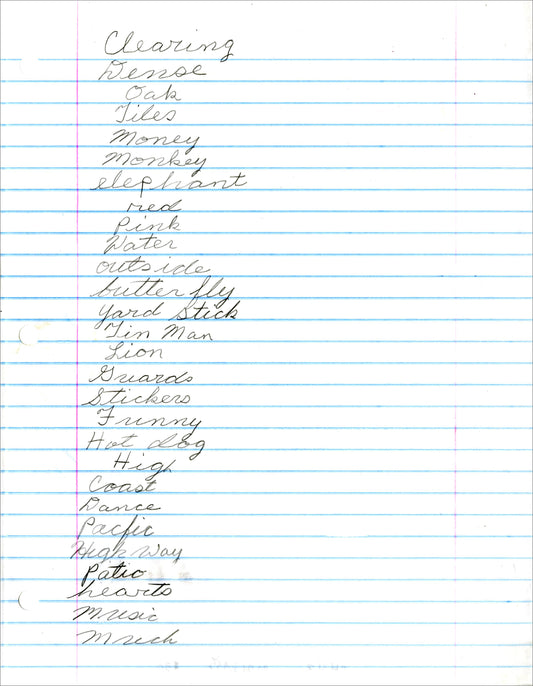 Clearing
Dense
Oak
Tiles
Money
Monkey
elephant
red
Pink
Water
outside
butterfly
Yard Stick
Tin Man
Lion
Guards
Stickers
Funny
Hot dog
High
Coast
Dance
Pacfic
High Way
Patio
hearts
Music
Much